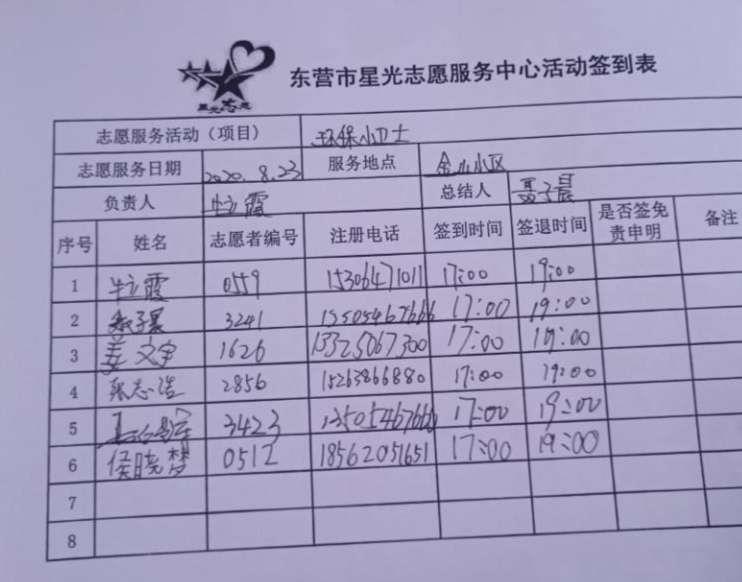 星光志愿
东营市星光志愿服务中心活动签到表
志愿服务活动（项目） 环保小卫士
志愿服务日期 2020.8.23 服务地点 金山小区
负责人 牛立霞 总结人 子晨
序号 姓名 志愿者编号 注册电话 签到时间 签退时间 是否签免责申明 备注
1 牛立霞 0559 15306471011 17:00 19:00
2 3241 17:00 19:00
3 姜文宇 1626 13325067300 17:00 19:00
4 张志浩 2856 15263866880 17:00 19:00
5 3423 17:00 19:00
6 侯晓梦 0512 18562051651 17:00 19:00
7
8